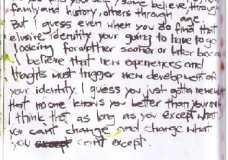 you and your self, some believe through
family and history, others through age.
But I guess even when you do find that
elusive identity your going to have to go
looking for another sooner or later because
I believe that new experiences and
thoughts must trigger new development of
your identity. I guess you just gotta remember
that no one knows you better than yourself
I think that as long as you except what
you can't change and change what
you can't except.